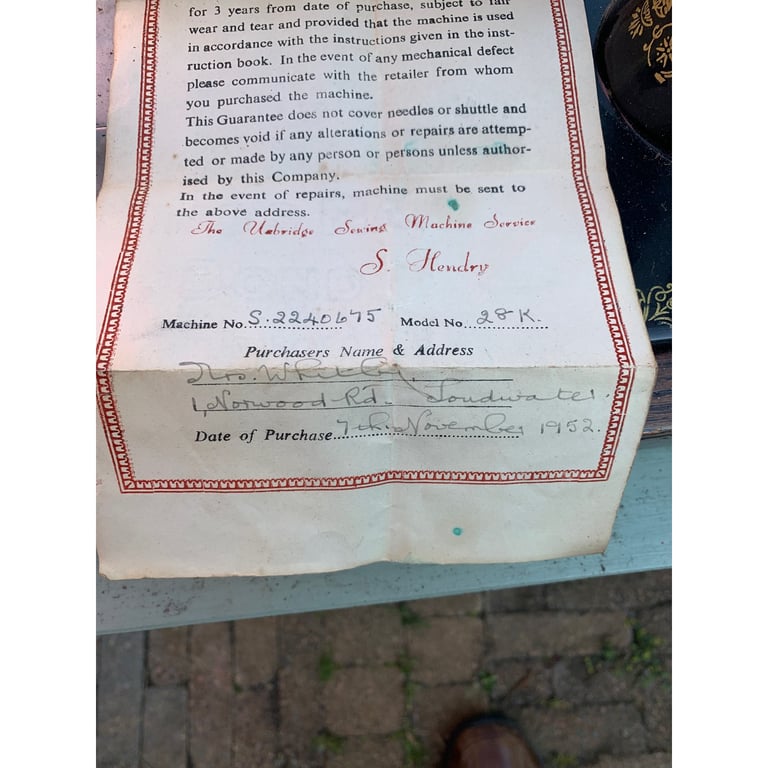 for 3 years from date of purchase, subject to fair
wear and tear and provided that the machine is used
in accordance with the instructions given in the inst-
ruction book. In the event of any mechanical defect
please communicate with the retailer from whom
you purchased the machine.
This Guarantee does not cover needles or shuttle and
becomes void if any alterations or repairs are attemp-
ted or made by any person or persons unless author-
ised by this Company.
In the event of repairs, machine must be sent to
the above address.
The Uxbridge Sewing Machine Service
S. Hendry
Machine No. S.2240675 Model No. 28K.
Purchasers Name & Address
Mrs. Whitley.
1, Norwood Rd. Loudwater.
Date of Purchase 7th. November 1952.